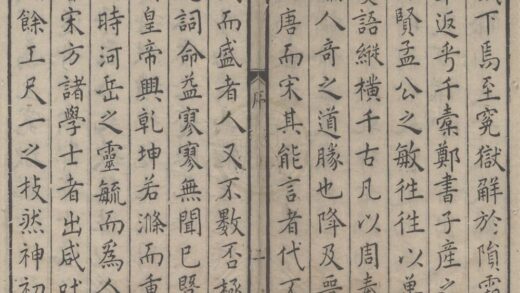 下焉至冤獄解於隕霜
返乎千橐鄭書子產之
賢孟公之敏往往以單
語縱橫千古凡以周壽
人奇之道勝也降及晉
唐而宋其能言者代不
序
二
而盛者人又不數否極
詞命益寥寥無聞已暨
皇帝興乾坤若滌而重
時河岳之靈毓而為人
宋方諸學士者出咸
餘工尺一之技然神初